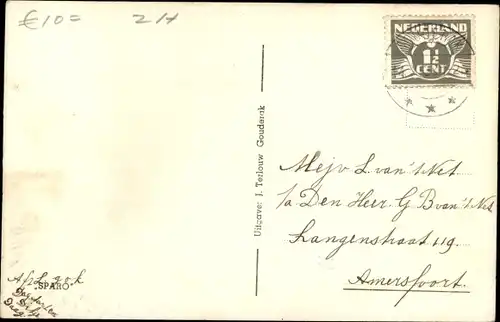 £10= 2H
NEDERLAND
1½
CENT
Uitgave: J. Terlouw Gouderak
Mejv L. van 't Net
p/a Den Heer G B van 't Net
Langenstraat 119.
Amersfoort.
"SPARO"